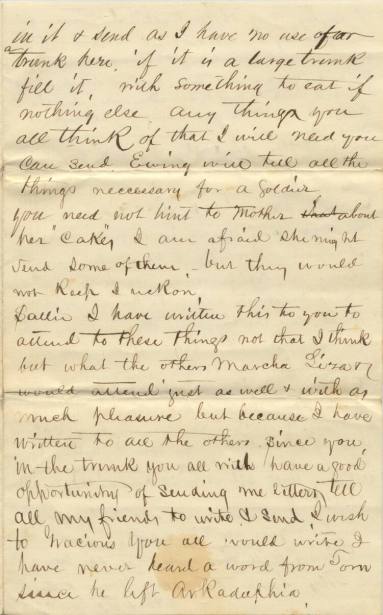 in it & send as I have no use of or
a trunk here, if it is a large trunk
fill it, with something to eat if
nothing else. any things you
all think of that I will need you
can send Ewing will tell all the
things neccessary for a soldier
you need not hint to Mother about
her "cakes" I am afraid she might
send some of them, but they would
not keep I reckon
Sallie I have written this to you to
attend to these things not that I think
but what the others Marcha
would attend just as well & with as
much pleasure but because I have
written to all the others since you
in the trunk you all will have a good
opportunity of sending me letters, tell
all my friends to write & send, I wish
to gracious you all would write I
have never heard a word from Tom
since he left Arkadelphia